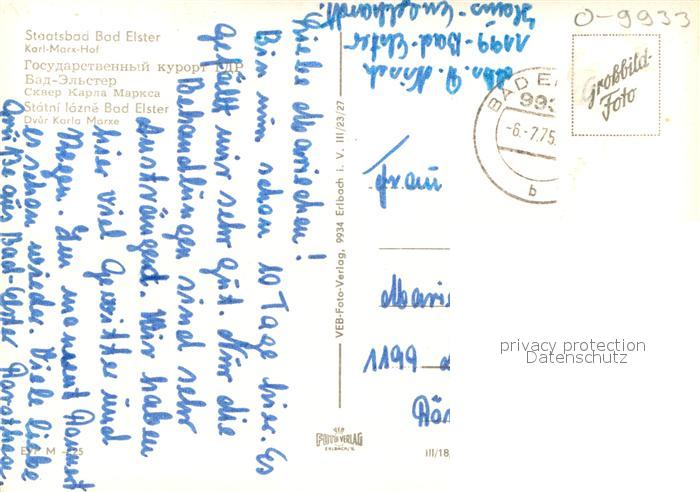 Staatsbad Bad Elster
Karl-Marx-Hof
Государственный курорт ГДР
Бад-Эльстер
Сквер Карла Маркса
Státní lázně Bad Elster
Dvůr Karla Marxe
Liebe Mariechen!
Bin nun schon 10 Tage hier. Es
gefällt mir sehr gut. Nur die
Behandlungen sind sehr
anstrengend. Wir haben
hier viel Gewitter und
Regen. Im moment kommt
es schon wieder. Viele liebe
Grüße aus Bad-Elster
VEB-Foto-Verlag, 9934 Erlbach i. V. III/23/27
Abs.
99-Bad-Elster
Haus-
O-9933
BAD E
993
-6.-7.75
b
Großbild-
Foto
Frau
1199
privacy protection
Datenschutz
FOTO VERLAG
ERLBACH/V.
III/18